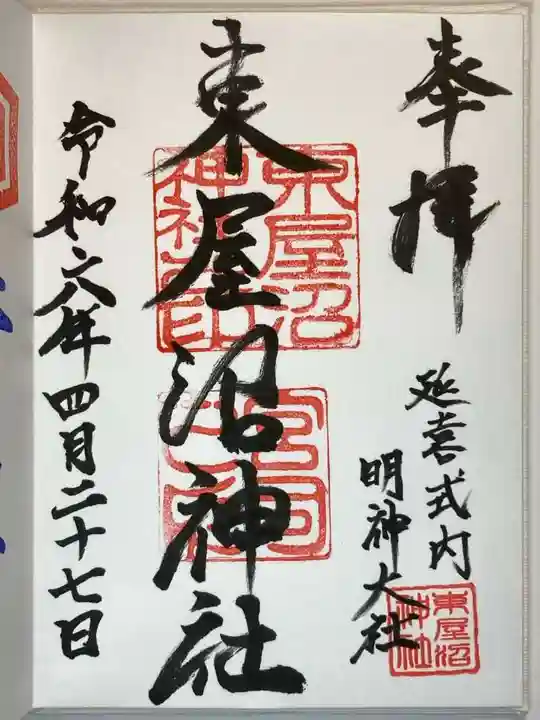 奉拝
延喜式内
明神大社
東屋沼神社
東屋沼神社
東屋沼神社印
宮司之印
令和六年四月二十七日